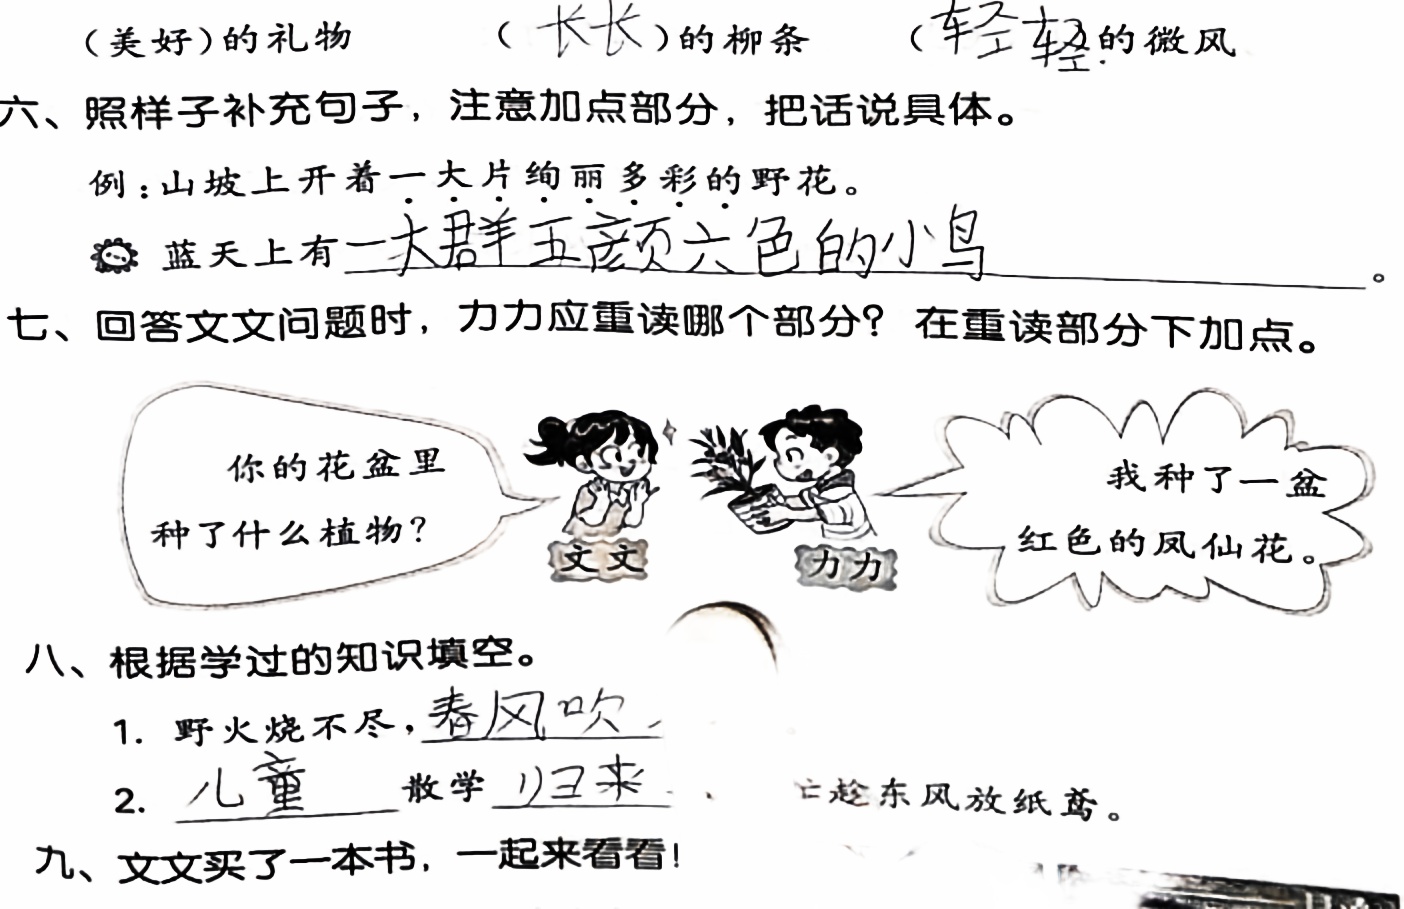 （美好）的礼物 （长长）的柳条 （轻轻）的微风
六、照样子补充句子，注意加点部分，把话说具体。
例：山坡上开着一大片绚丽多彩的野花。
蓝天上有一大群五颜六色的小鸟。
七、回答文文问题时，力力应重读哪个部分？在重读部分下加点。
你的花盆里
种了什么植物？
文文
力力
我种了一盆
红色的凤仙花。
八、根据学过的知识填空。
1. 野火烧不尽，春风吹
2. 儿童散学归来 趁东风放纸鸢。
九、文文买了一本书，一起来看看！